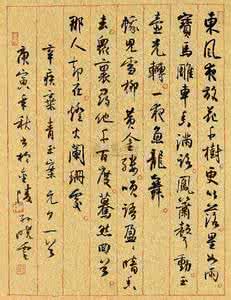 東風夜放花千樹更吹落星如雨
寶馬雕車香滿路鳳簫聲動玉
壺光轉一夜魚龍舞
蛾兒雪柳黃金縷笑語盈盈暗香
去眾裏尋他千百度驀然回首
那人卻在燈火闌珊處
辛棄疾青玉案元夕一首
庚寅季秋書於金陵孫曉雲